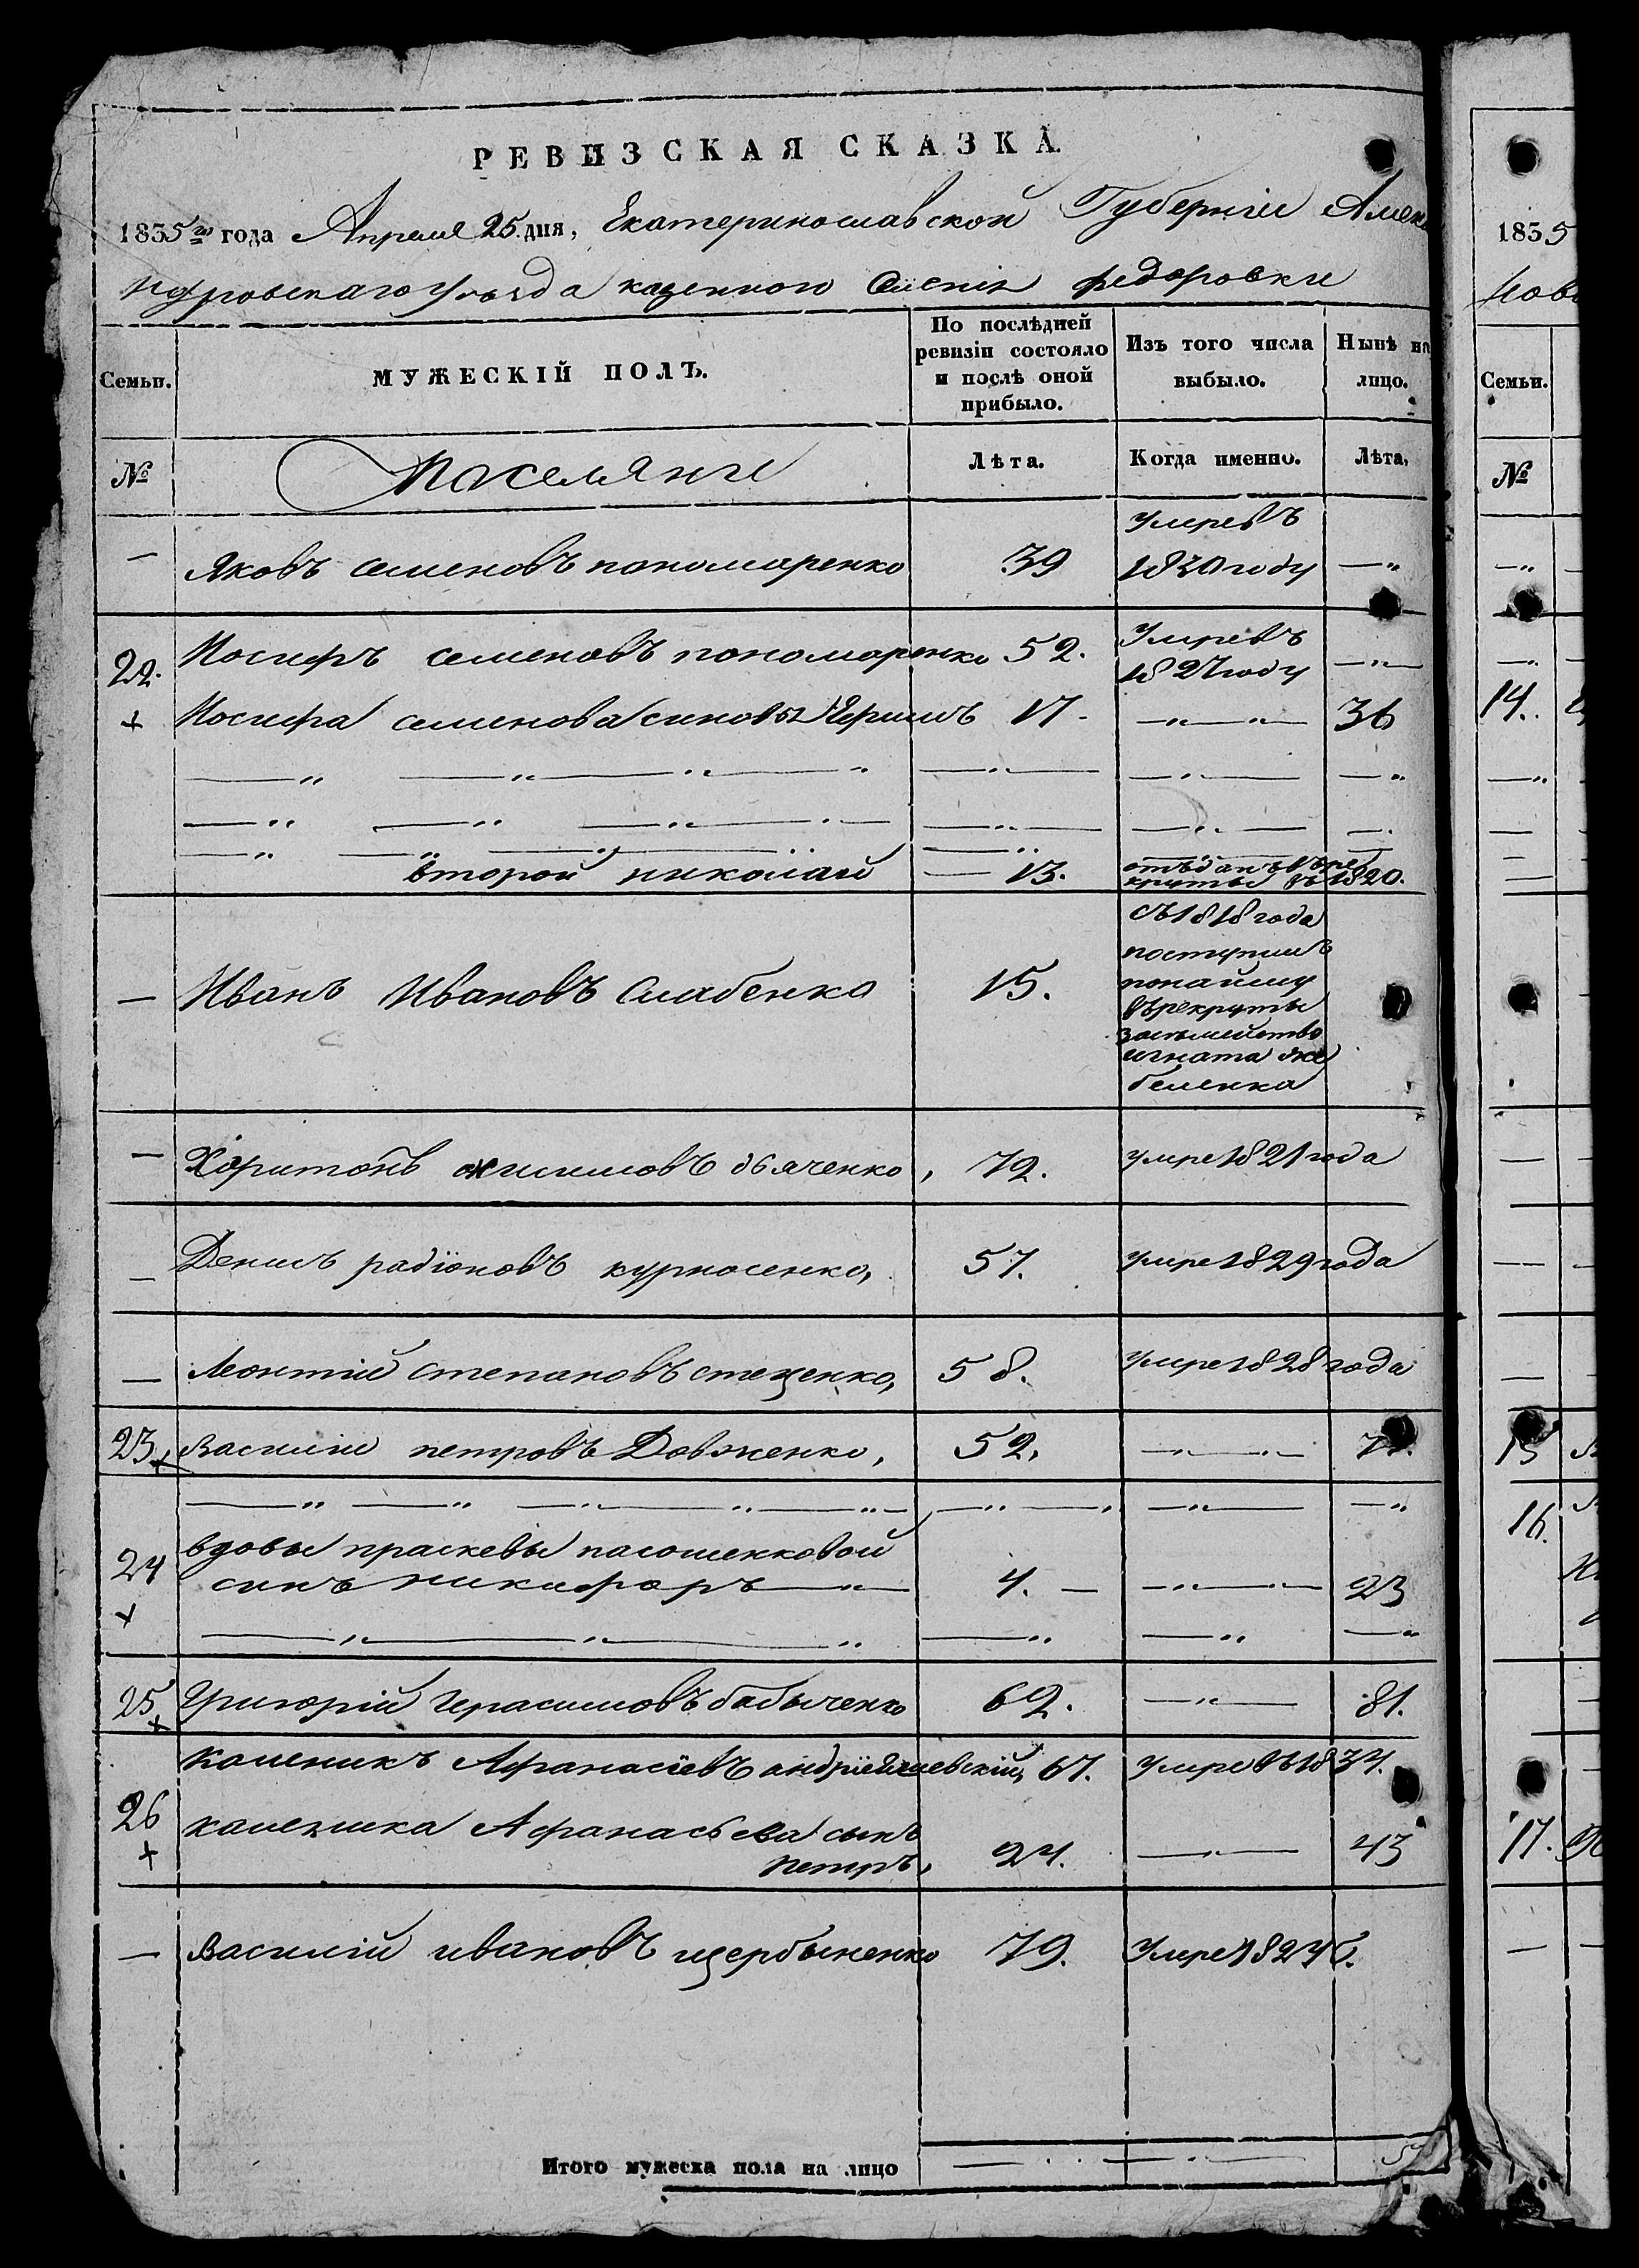 РЕВИЗСКАЯ СКАЗКА.
1835го года Апреля 25 дня, Екатеринославской Губернии Алекса
ндровскаго уъзда казенного Селения федоровки
Семьи.
МУЖЕСКІЙ ПОЛЪ.
По послѣдней ревизіи состояло и послѣ оной прибыло.
Изъ того числа выбыло.
Нынѣ на лицо.
№
Поселяне
Лѣта.
Когда именно.
Лѣта,
— Яковъ семеновъ пономаренко 39 умре въ 1830 году —"
22. Иосифъ семеновъ пономаренко 52. Умре въ 1827 году —"—
+ Иосифа семенова синовья 17 - —"—"— 36
второй николай — 13. отъданъ въ ре круты въ 1820.
— Иванъ Ивановъ Слабенко 15. Съ 1818 года
поступилъ
по найму
въ рекруты
за семейство
игната
беленка
— Харитонъ дьяченко, 72. умре 1821 года
— Денисъ радіоновъ курносенко, 57. умре 1829 года
— Леонтий степановъ стеценко, 58. умре 1828 года
23 + Василий петровъ Довженко, 52, —"—"— 71.
24 вдовы праскевы
+ синъ никифоръ —"— 4. — —"—"— 23
25 + Григорій Герасимовъ бабыченко 62. —"— 81.
26 каленикъ Афанасіевъ 67. умре въ 1834.
+ каленика Афанасьева сынъ
петръ, 24. —"— 43
— Василий ивановъ щербыненко 79. Умре 1824 г.
Итого мужеска пола на лицо
1835
Нов
Семьи.
№
14.
15
16.
17.